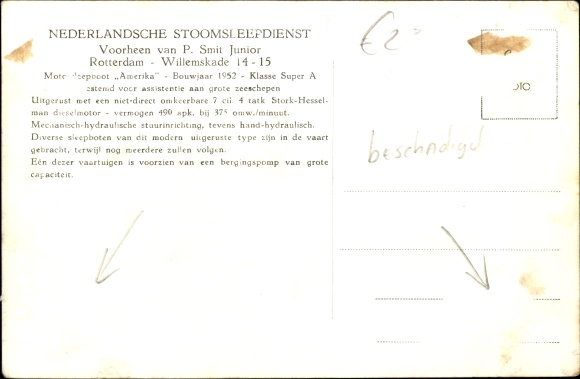 NEDERLANDSCHE STOOMSLEEPDIENST
Voorheen van P. Smit Junior
Rotterdam - Willemskade 14 - 15
Motorsleepboot „Amerika" - Bouwjaar 1952 - Klasse Super A
dienend voor assistentie aan grote zeeschepen
Uitgerust met een niet-direct omkeerbare 7 cil. 4 takt Stork-Hessel-
man dieselmotor - vermogen 490 apk. bij 375 omw./minuut.
Mechanisch-hydraulische stuurinrichting, tevens hand-hydraulisch.
Diverse sleepboten van dit modern uitgeruste type zijn in de vaart
gebracht, terwijl nog meerdere zullen volgen.
Eén dezer vaartuigen is voorzien van een bergingspomp van grote
capaciteit.
€2
beschadigd